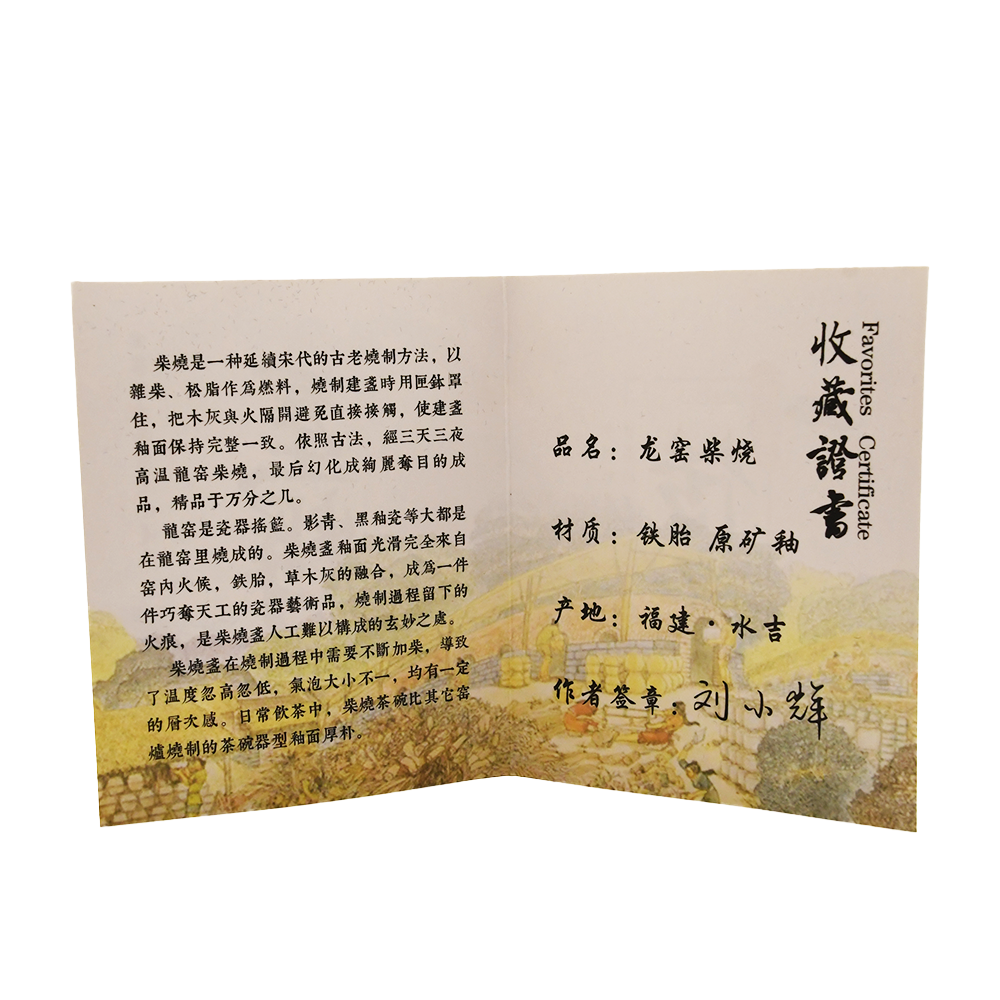 柴燒是一种延續宋代的古老燒制方法，以
雜柴、松脂作爲燃料，燒制建盞時用匣鉢罩
住，把木灰與火隔開避免直接接觸，使建盞
釉面保持完整一致。依照古法，經三天三夜
高温龍窑柴燒，最后幻化成絢麗奪目的成
品，精品于万分之几。
龍窑是瓷器摇籃。影青、黑釉瓷等大都是
在龍窑里燒成的。柴燒盞釉面光滑完全來自
窑内火候，鉄胎，草木灰的融合，成爲一件
件巧奪天工的瓷器藝術品，燒制過程留下的
火痕，是柴燒盞人工難以構成的玄妙之處。
柴燒盞在燒制過程中需要不斷加柴，導致
了温度忽高忽低，氣泡大小不一，均有一定
的層次感。日常飲茶中，柴燒茶碗比其它窑
爐燒制的茶碗器型釉面厚朴。
收藏證書
Favorites Certificate
品名：龙窑柴烧
材质：铁胎 原矿釉
产地：福建·水吉
作者签章：刘小辉